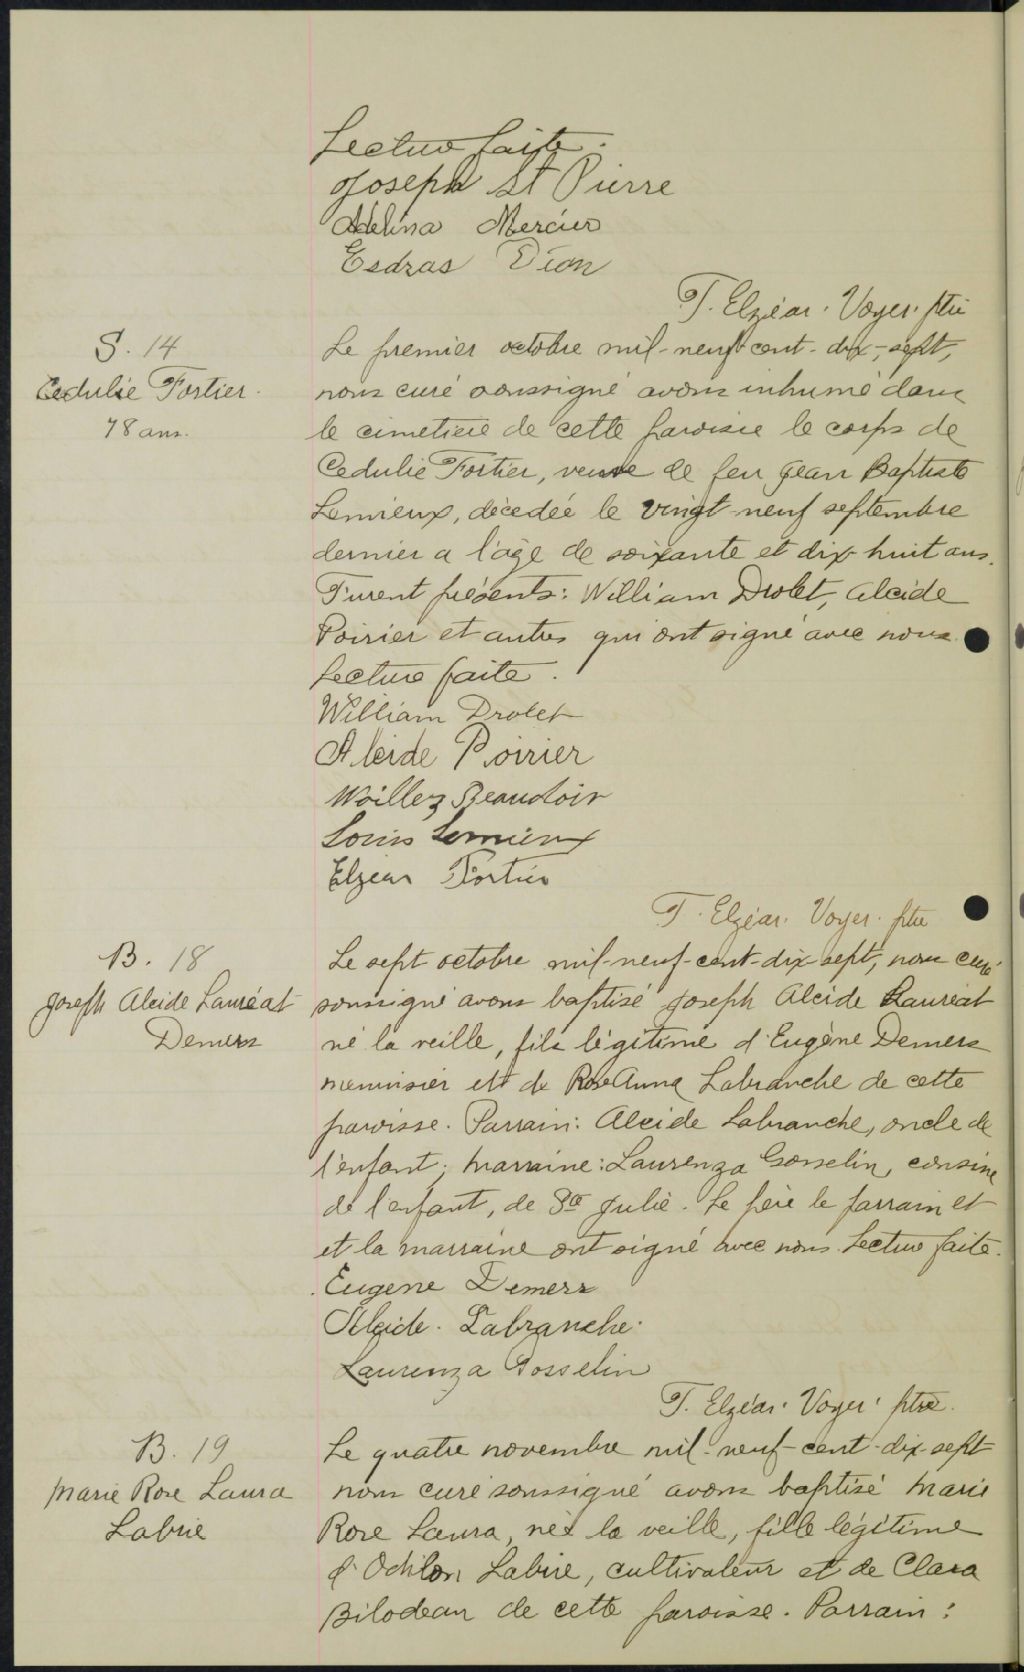 Lecture faite.
Joseph St Pierre
Adélina Mercier
Esdras Dion
T. Elzéar. Voyer. ptre
S. 14
Cedulie Fortier.
78 ans.
Le premier octobre mil-neuf cent-dix-sept,
nous curé soussigné avons inhumé dans
le cimetiere de cette paroisse le corps de
Cedulie Fortier, veuve de feu Jean Baptiste
Lemieux, décedée le vingt-neuf septembre
dernier a l'age de soixante et dix-huit ans.
Furent présents: William Drolet, Alcide
Poirier et autres qui ont signé avec nous.
Lecture faite.
William Drolet
Alcide Poirier
Woillez Beaudoin
Louis Lemieux
Elzear Fortier
T. Elzéar. Voyer. ptre
B. 18
Joseph Alcide Lauréat
Demers
Le sept octobre mil-neuf-cent-dix-sept, nous curé
soussigné avons baptisé Joseph Alcide Lauréat
né la veille, fils légitime d'Eugène Demers
menuisier et de RoseAnna Labranche de cette
paroisse. Parrain: Alcide Labranche, oncle de
l'enfant; marraine: Laurenza Gosselin, cousine
de l'enfant, de Ste Julie. Le père le parrain et
et la marraine ont signé avec nous. Lecture faite.
Eugene Demers
Alcide. Labranche.
Laurenza Gosselin
T. Elzéar. Voyer. ptre.
B. 19
Marie Rose Laura
Labrie
Le quatre novembre mil-neuf-cent-dix-sept
nous curé soussigné avons baptisé Marie
Rose Laura, née la veille, fille légitime
d'Odilon Labrie, cultivateur et de Clara
Bilodeau de cette paroisse. Parrain: